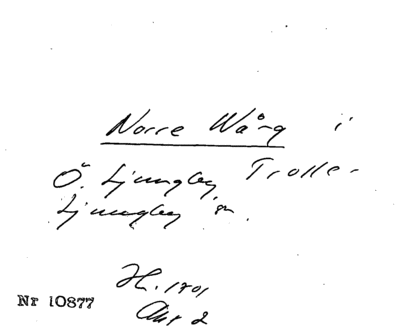 Norre Wång i
Ö. Ljungby, Trolle-
Ljungby sn.
H. 1701
Akt 2
Nr 10877